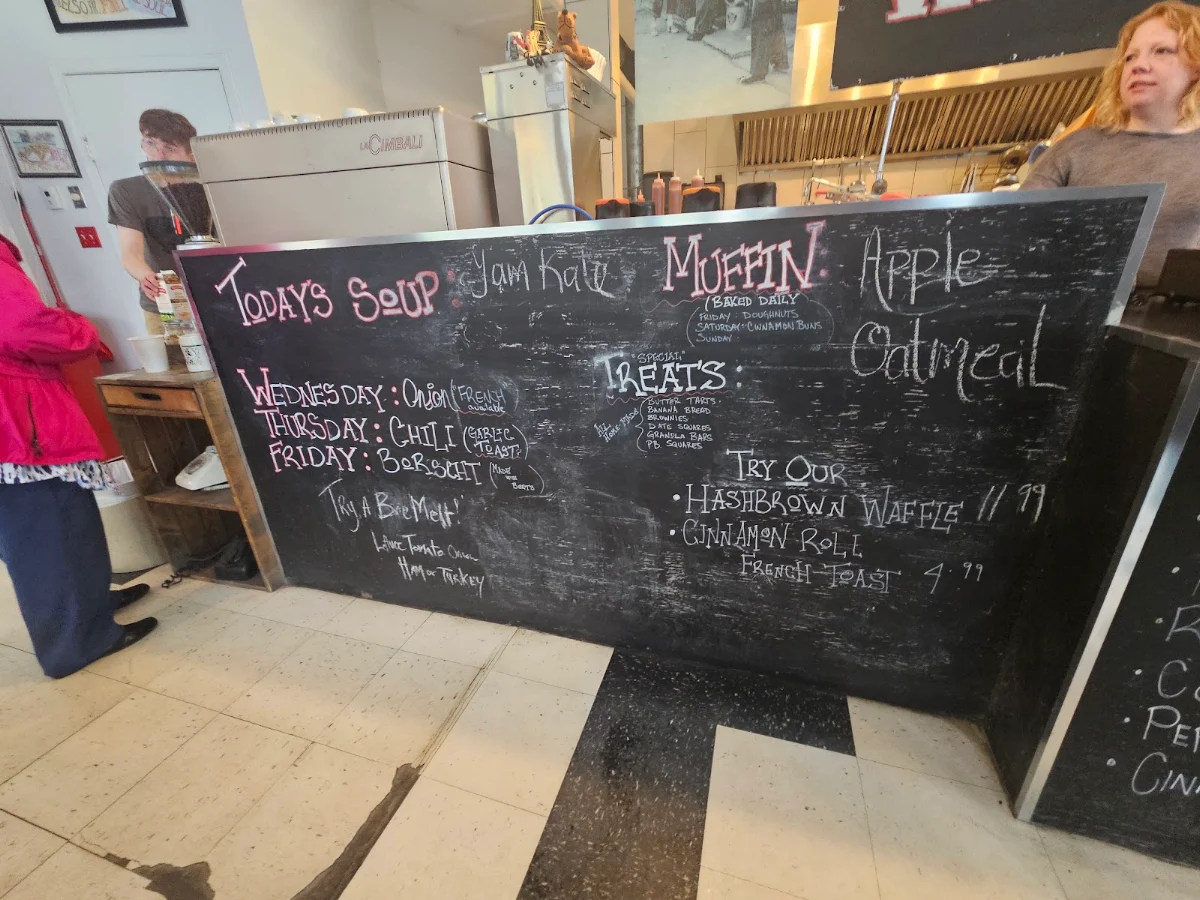 LACIMBALI
TODAY'S SOUP: Yam Kale
WEDNESDAY: Onion (FRENCH available)
THURSDAY: CHILI (GARLIC TOAST)
FRIDAY: BORSCHT (MADE WITH BEETS)
TRY A
LETTUCE TOMATO ONION
HAM OR TURKEY
MUFFIN: Apple
Oatmeal
(BAKED DAILY
FRIDAY: DOUGHNUTS
SATURDAY: CINNAMON BUNS
SUNDAY
"SPECIAL"
TREATS:
ALL HOME-MADE
BUTTER TARTS
BANANA BREAD
BROWNIES
DATE SQUARES
GRANOLA BARS
P.B. SQUARES
TRY OUR
• HASHBROWN WAFFLE 11 99
• CINNAMON ROLL
FRENCH-TOAST 4.99